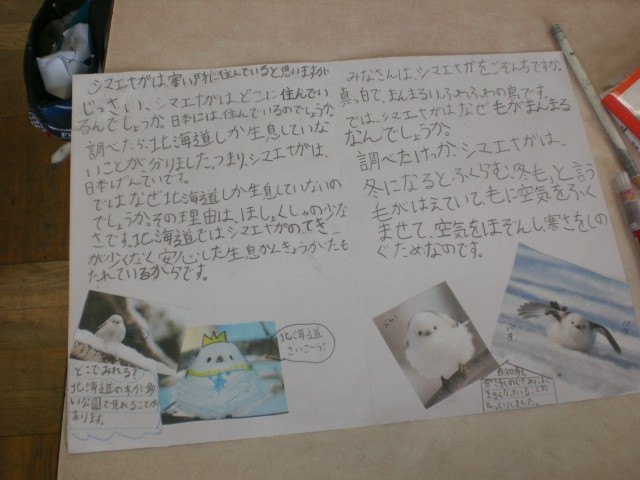 シマエナガは、寒い所に住んでいると思いますが
じっさい、シマエナガは、どこに住んでい
るんでしょうか。日本には住んでいるのでしょうか。
調べたら、北海道しか生息していな
いことが分りました。つまり、シマエナガは、
日本げんていです。
ではなぜ北海道しか生息していないの
でしょうか。その理由は、ほしょくしゃの少な
さです。北海道ではシマエナガのてき
が少くなく安心した生息かんきょうがたも
たれているからです。
どこでみれる?
北海道の木が多
い公園で見れることが
あります。
北海道
さいこーう!
みなさんは、シマエナガをごぞんちですか。
真っ白で、まんまるいふわふわの鳥です。
では、シマエナガはなぜ毛がまんまる
なんでしょうか。
調べたけっか、シマエナガは、
冬になるとふくらむ、冬毛、と言う
毛がはえていて、毛に空気をふく
ませて、空気をほぞんし、寒さをしの
ぐためなのです。